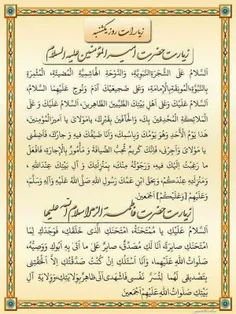 زیارات روز یکشنبه
زیارت حضرت امیرالمؤمنین علیه السلام
اَلسَّلامُ عَلَى الشَّجَرَةِ النَّبَوِيَّةِ، وَالدَّوْحَةِ الْهاشِمِيَّةِ الْمُضيئَةِ، الْمُثْمِرَةِ
بِالنُّبُوَّةِ الْمُونِقَةِ بِالْاِمامَةِ، وَعَلى ضَجيعَيْكَ آدَمَ وَنُوحٍ عَلَيْهِمَا السَّلامُ
اَلسَّلامُ عَلَيْكَ وَعَلى اَهْلِ بَيْتِكَ الطَّيِّبينَ الطّاهِرينَ، اَلسَّلامُ عَلَيْكَ وَعَلَى
الْمَلائِكَةِ الْمُحْدِقينَ بِكَ، وَالْحافّينَ بِقَبْرِكَ يا مَوْلايَ يا اَميرَالْمُؤْمِنينَ
هذا يَوْمُ الْاَحَدِ وَهُوَ يَوْمُكَ وَبِاسْمِكَ، وَاَنَا ضَيْفُكَ فيهِ وَجارُكَ، فَاَضِفْني يا
مَوْلايَ وَاَجِرْني، فَاِنَّكَ كَريمٌ تُحِبُّ الضِّيافَةَ وَ مَأْمُورٌ بِالْاِجارَةِ، فَافْعَلْ
ما رَغِبْتُ اِلَيْكَ فيهِ، وَرَجَوْتُهُ مِنْكَ، بِمَنْزِلَتِكَ وَ آلِ بَيْتِكَ عِنْدَاللهِ،
وَمَنْزِلَتِهِ عِنْدَكُمْ، وَبِحَقِّ ابْنِ عَمِّكَ رَسُولِ اللهِ صَلَّى اللهُ عَلَيْهِ وَآلِهِ وَسَلَّمَ،
وَعَلَيْهِمْ [وَعَلَيْكُمْ] اَجْمَعينَ.
زیارت حضرت فاطمه زهرا سلام الله علیها
اَلسَّلامُ عَلَيْكِ يا مُمْتَحَنَةُ، اِمْتَحَنَكِ الَّذي خَلَقَكِ، فَوَجَدَكِ لِمَا
امْتَحَنَكِ صابِرَةً، اَنَا لَكِ مُصَدِّقٌ، صابِرٌ عَلى ما اَتى بِهِ اَبُوكِ وَوَصِيُّهُ،
صَلَواتُ اللهِ عَلَيْهِما، وَاَنَا اَسْئَلُكِ اِنْ كُنْتُ صَدَّقْتُكِ اِلّا اَلْحَقْتِني
بِتَصْديقي لَهُما لِتُسَرَّ نَفْسي فَاشْهَدي اَنّي ظاهِرٌ بِوِلايَتِكِ وَوِلايَةِ آلِ
بَيْتِكِ صَلَواتُ اللهِ عَلَيْهِمْ اَجْمَعينَ